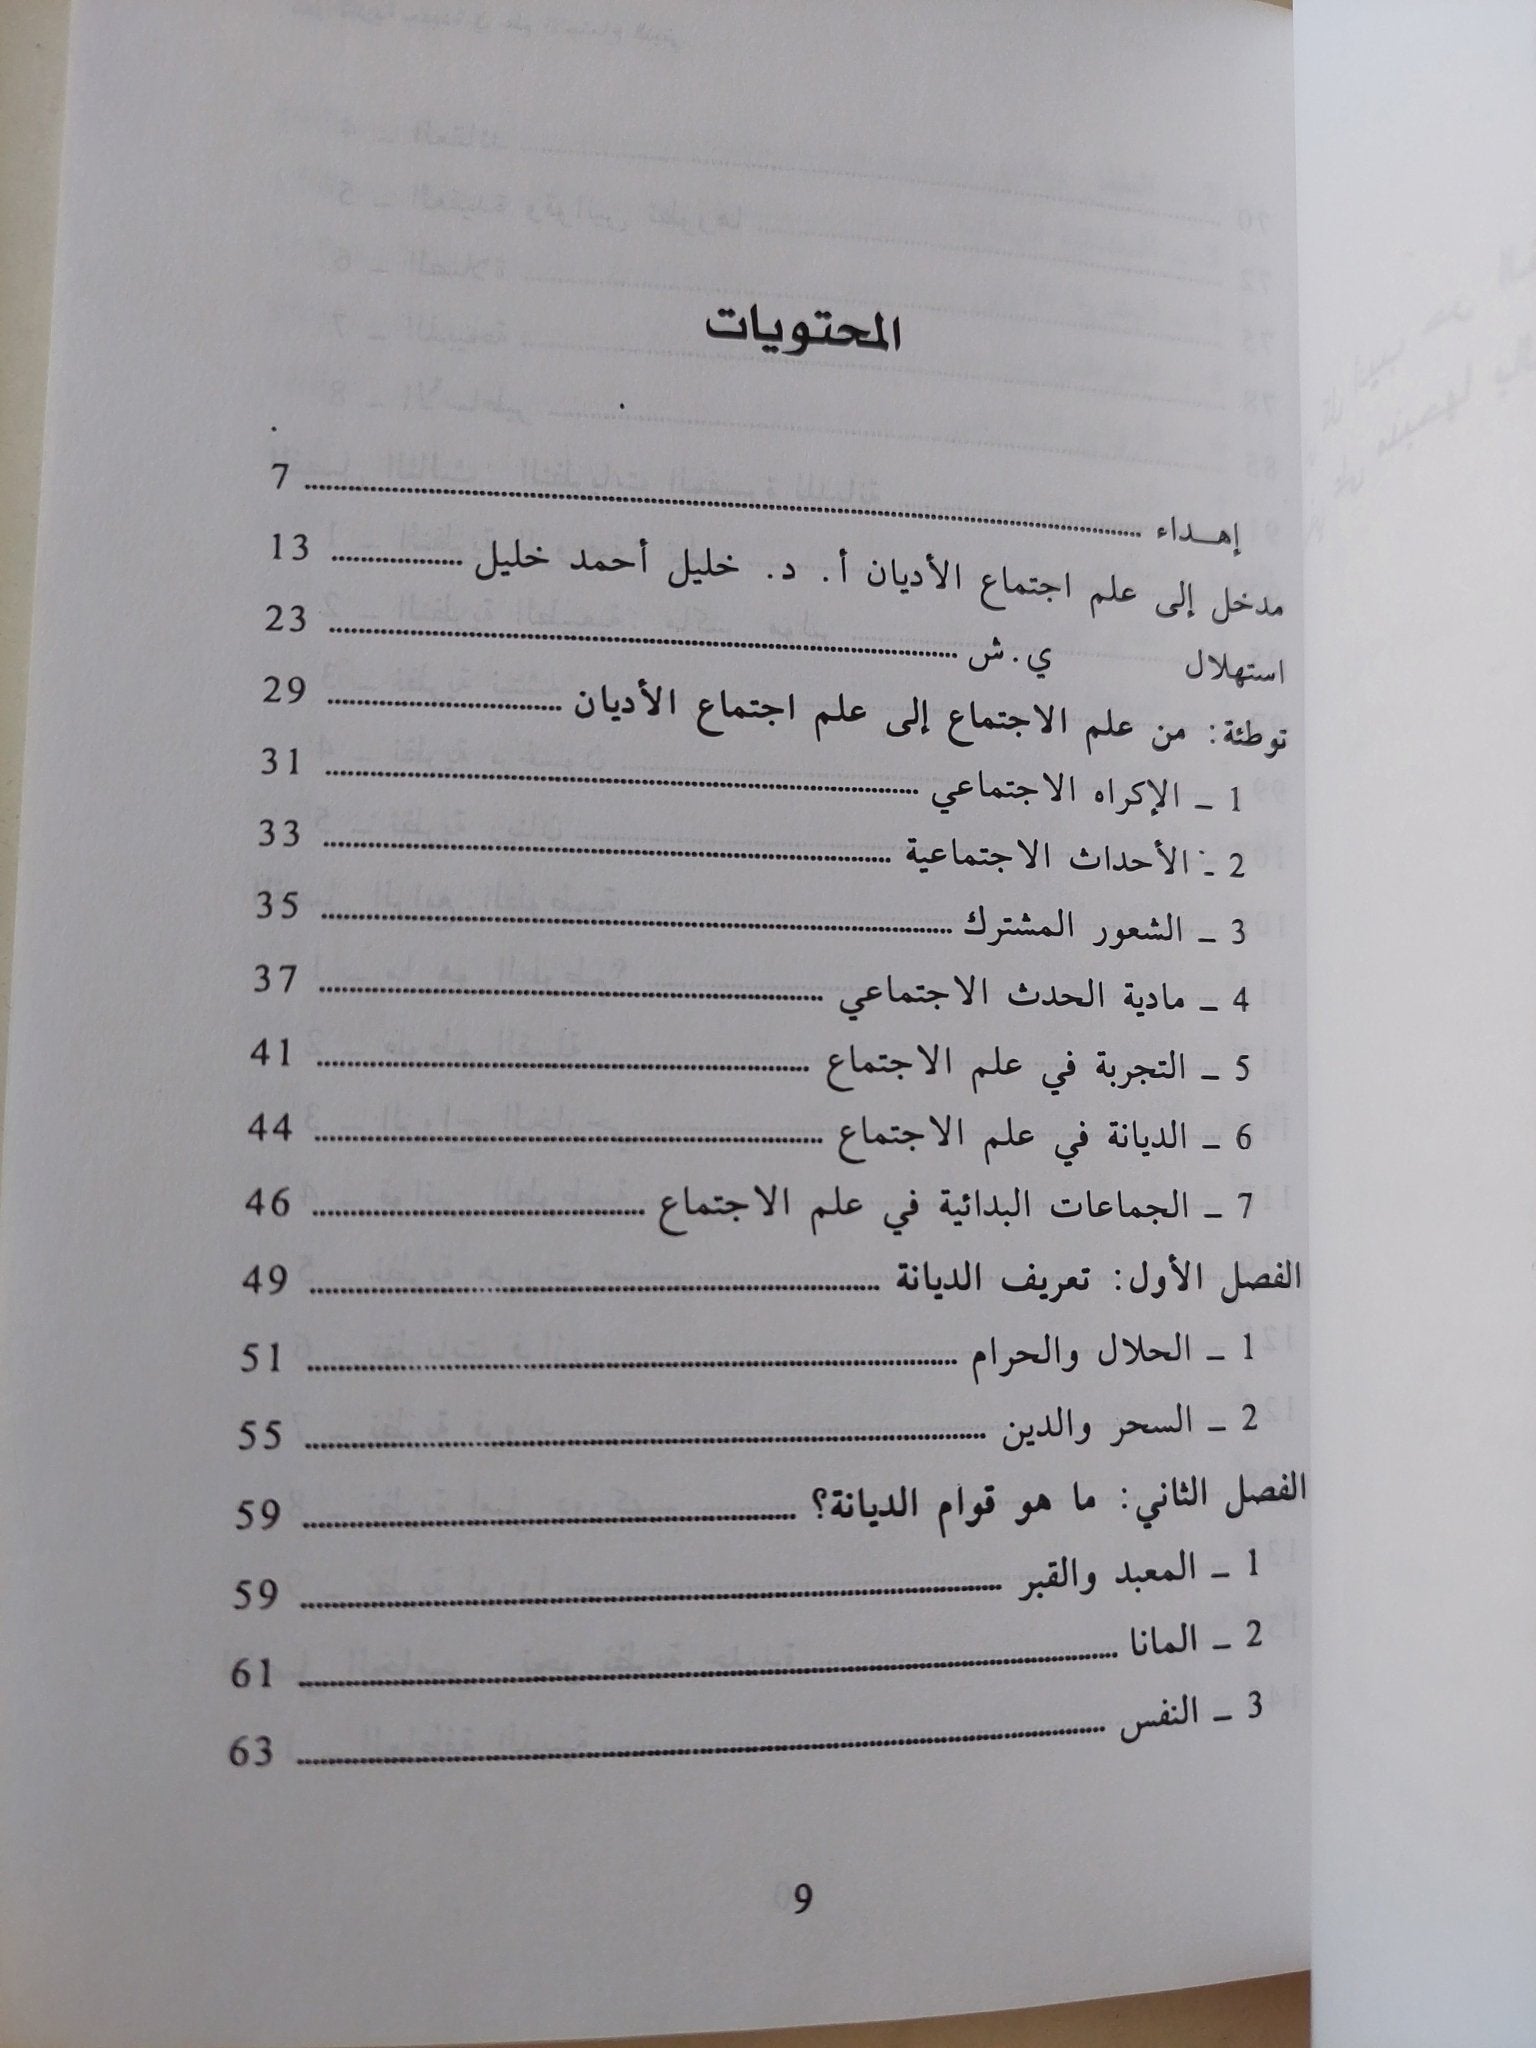 المحتويات
إهـداء ........ 7
مدخل إلى علم اجتماع الأديان أ. د. خليل أحمد خليل ........ 13
استهلال ي.ش ........ 23
توطئة: من علم الاجتماع إلى علم اجتماع الأديان ........ 29
1 ـ الإكراه الاجتماعي ........ 31
2 ـ الأحداث الاجتماعية ........ 33
3 ـ الشعور المشترك ........ 35
4 ـ مادية الحدث الاجتماعي ........ 37
5 ـ التجربة في علم الاجتماع ........ 41
6 ـ الديانة في علم الاجتماع ........ 44
7 ـ الجماعات البدائية في علم الاجتماع ........ 46
الفصل الأول: تعريف الديانة ........ 49
1 ـ الحلال والحرام ........ 51
2 ـ السحر والدين ........ 55
الفصل الثاني: ما هو قوام الديانة؟ ........ 59
1 ـ المعبد والقبر ........ 59
2 ـ المانا ........ 61
3 ـ النفس ........ 63
9